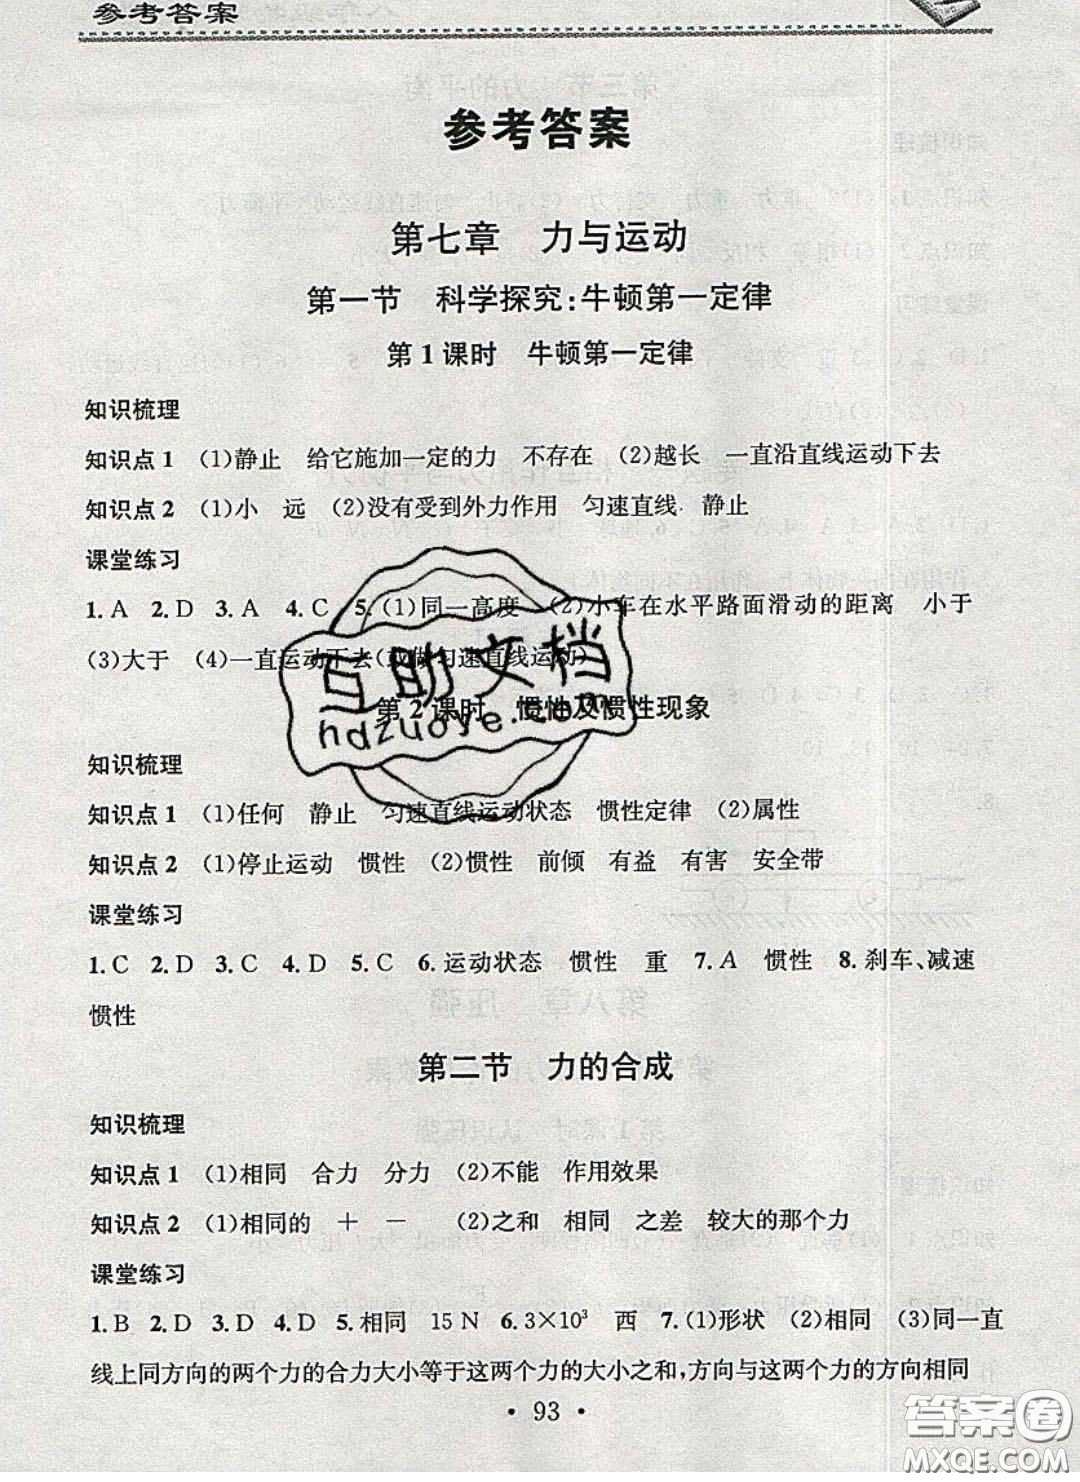 参考答案
参考答案
第七章 力与运动
第一节 科学探究:牛顿第一定律
第1课时 牛顿第一定律
知识梳理
知识点1 (1)静止 给它施加一定的力 不存在 (2)越长 一直沿直线运动下去
知识点2 (1)小 远 (2)没有受到外力作用 匀速直线 静止
课堂练习
1. A 2. D 3. A 4. C 5. (1)同一高度 (2)小车在水平路面滑动的距离 小于
(3)大于 (4)一直运动下去(或做匀速直线运动)
互助文档
hdzuoye.com
第2课时 惯性及惯性现象
知识梳理
知识点1 (1)任何 静止 匀速直线运动状态 惯性定律 (2)属性
知识点2 (1)停止运动 惯性 (2)惯性 前倾 有益 有害 安全带
课堂练习
1. C 2. D 3. C 4. D 5. C 6. 运动状态 惯性 重 7. A 惯性 8. 刹车、减速
惯性
第二节 力的合成
知识梳理
知识点1 (1)相同 合力 分力 (2)不能 作用效果
知识点2 (1)相同的 + - (2)之和 相同 之差 较大的那个力
课堂练习
1. B 2. D 3. D 4. D 5. 相同 15 N 6. 3×10³ 西 7. (1)形状 (2)相同 (3)同一直
线上同方向的两个力的合力大小等于这两个力的大小之和,方向与这两个力的方向相同
· 93 ·
答案圈
MXQE.COM